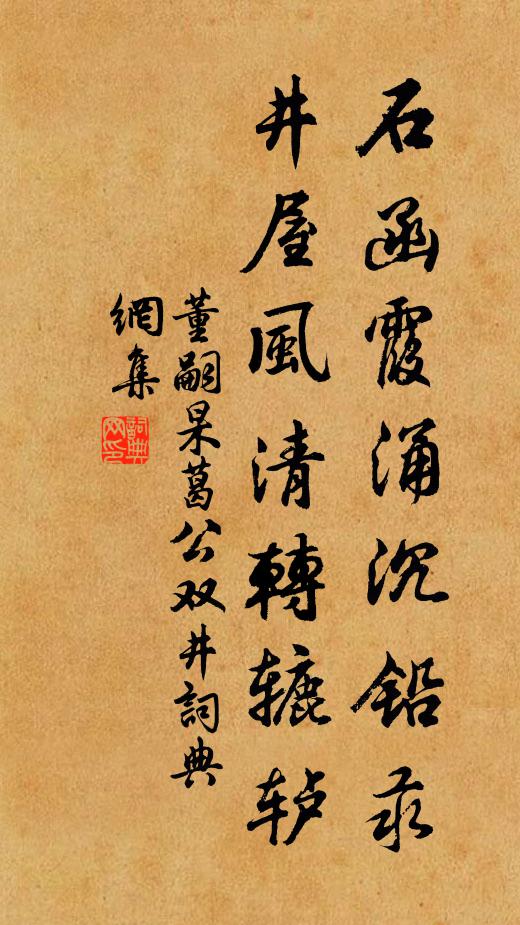 石函霞涌沉铅汞
井屋風清轉辘轳
董嗣杲葛公双井詞典
網集
詞典網印